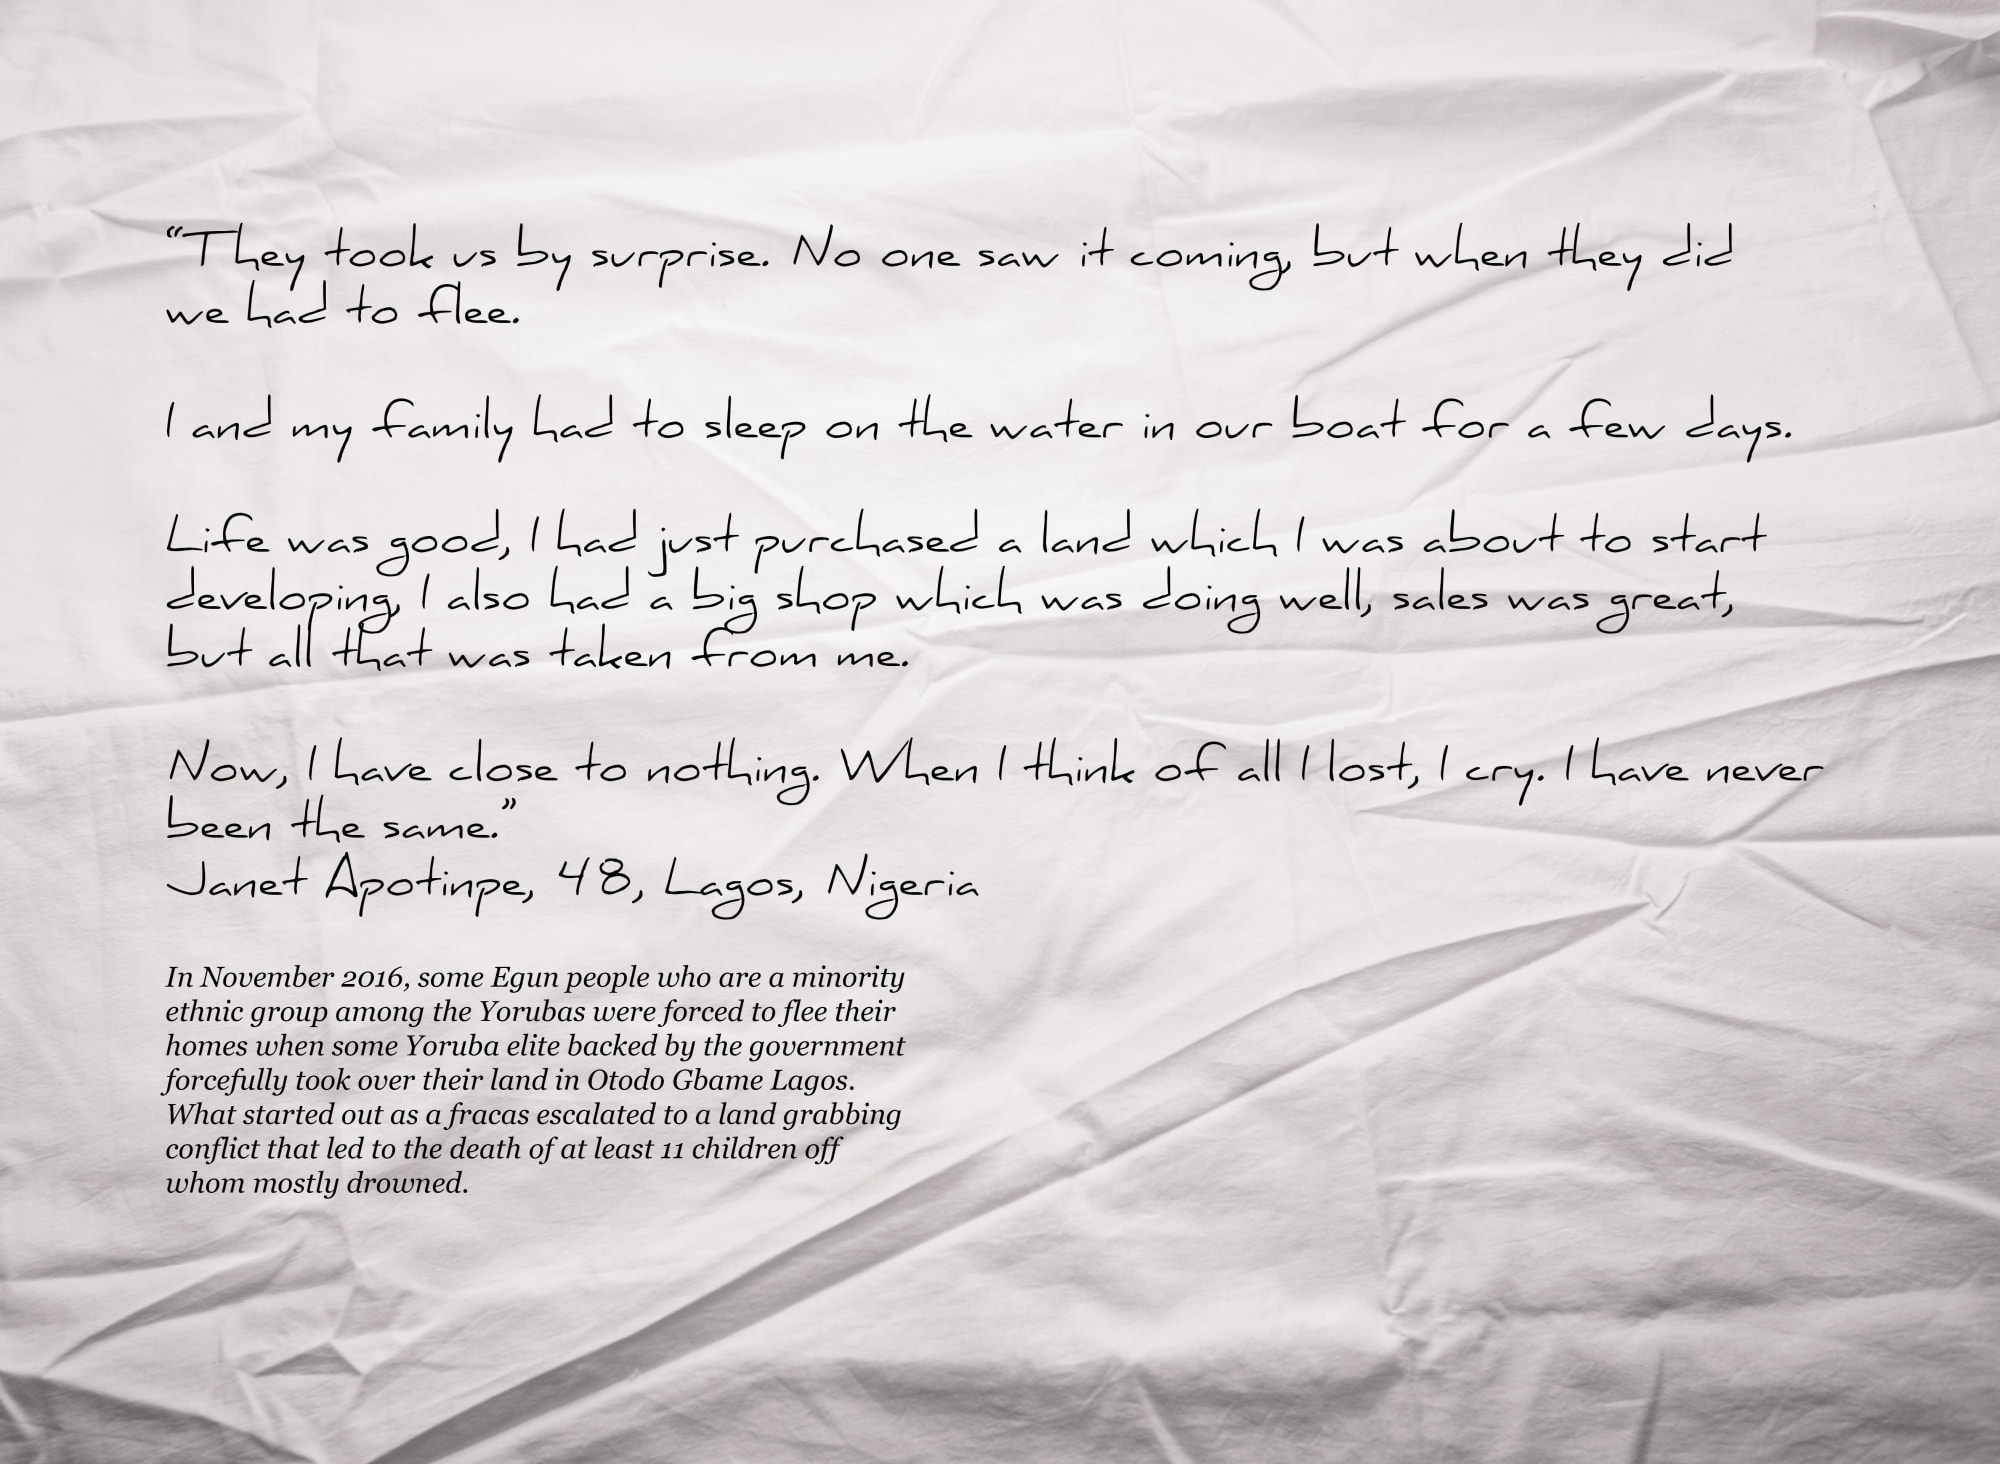 “They took us by surprise. No one saw it coming, but when they did
we had to flee.
I and my family had to sleep on the water in our boat for a few days.
Life was good, I had just purchased a land which I was about to start
developing, I also had a big shop which was doing well, sales was great,
but all that was taken from me.
Now, I have close to nothing. When I think of all I lost, I cry. I have never
been the same.”
Janet Apotinpe, 48, Lagos, Nigeria
In November 2016, some Egun people who are a minority
ethnic group among the Yorubas were forced to flee their
homes when some Yoruba elite backed by the government
forcefully took over their land in Otodo Gbame Lagos.
What started out as a fracas escalated to a land grabbing
conflict that led to the death of at least 11 children off
whom mostly drowned.